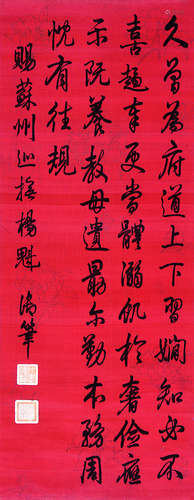 久曾為府道上下習嫻知必不
喜趨華更當體溺飢於奢儉應
示既養教毋遺最尔勤本務周
忱有往規
賜蘇州巡撫楊魁 御筆